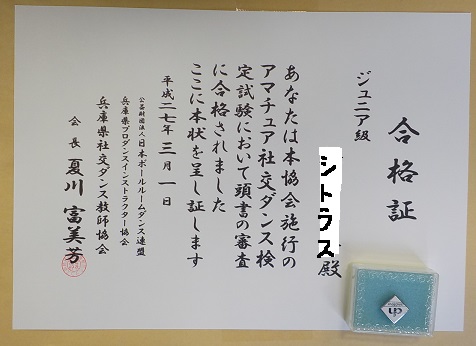 合格証
ジュニア級
シトラス殿
あなたは本協会施行の
アマチュア社交ダンス検
定試験において頭書の審査
に合格されました
ここに本状を呈し証します
平成二七年三月一日
公益財団法人日本ボールルームダンス連盟
兵庫県プロダンスインストラクター協会
兵庫県社交ダンス教師協会
会長 夏川富美芳